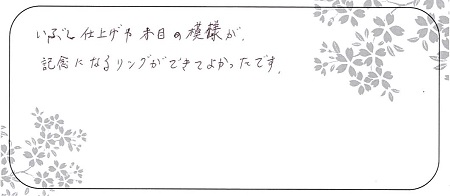 いぶし仕上げや木目の模様が、
記念になるリングができてよかったです。